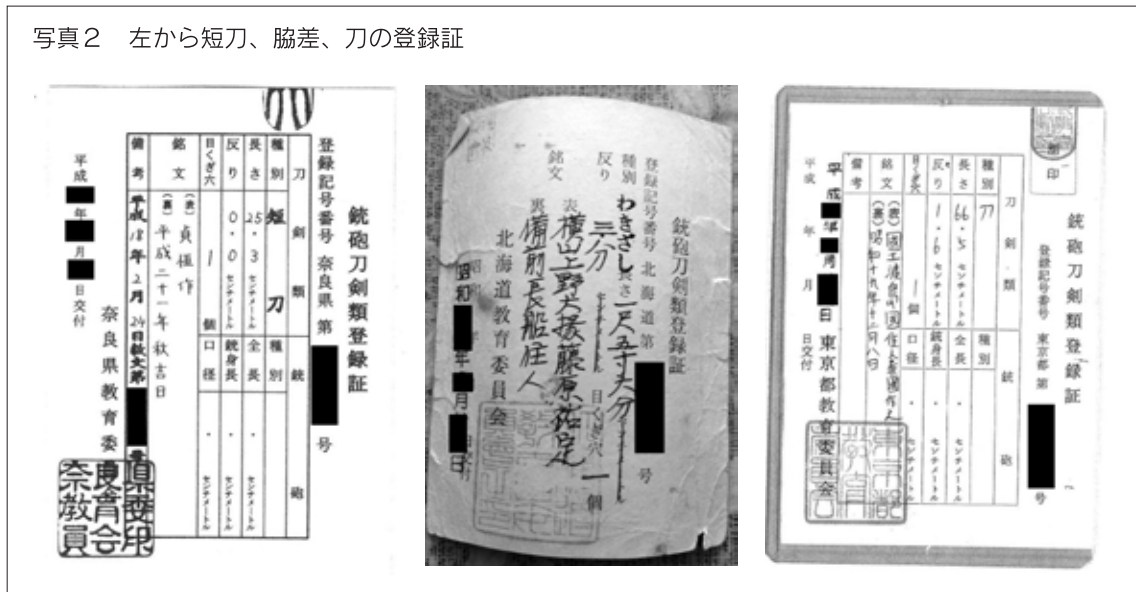 写真２　左から短刀、脇差、刀の登録証
銃砲刀剣類登録証
登録記号番号 奈良県 第 号
刀剣類 銃砲
種別 短刀 種別
長さ 25.3 センチメートル 全長 . センチメートル
反り 0.0 センチメートル 銃身長 . センチメートル
目くぎ穴 1 個 口径 . センチメートル
銘文 (表) 貞極作
(裏) 平成二十一年秋吉日
備考 平成18年2月24日教文第 号
奈良県教育委
平成 年 月 日交付
奈良県教育委員会印
銃砲刀剣類登録証
登録記号番号 北海道 第 号
種別 わきざし 長さ 一尺五寸六分
反り 三分 目くぎ穴 一個
銘文 表 横山上野大掾藤原祐定
裏 備前長船住人
北海道教育委員会
昭和 年 月 日
銃砲刀剣類登録証
登録記号番号 東京都 第 号
刀剣類 銃砲
種別 刀 種別
長さ 66.5 センチメートル 全長 . センチメートル
反り 1.6 センチメートル 銃身長 . センチメートル
目くぎ穴 1 個 口径 . センチメートル
銘文 (表)
(裏) 昭和十九年十二月八日
備考
東京都教育委員会
平成 年 月 日
平成 年 月 日交付
印